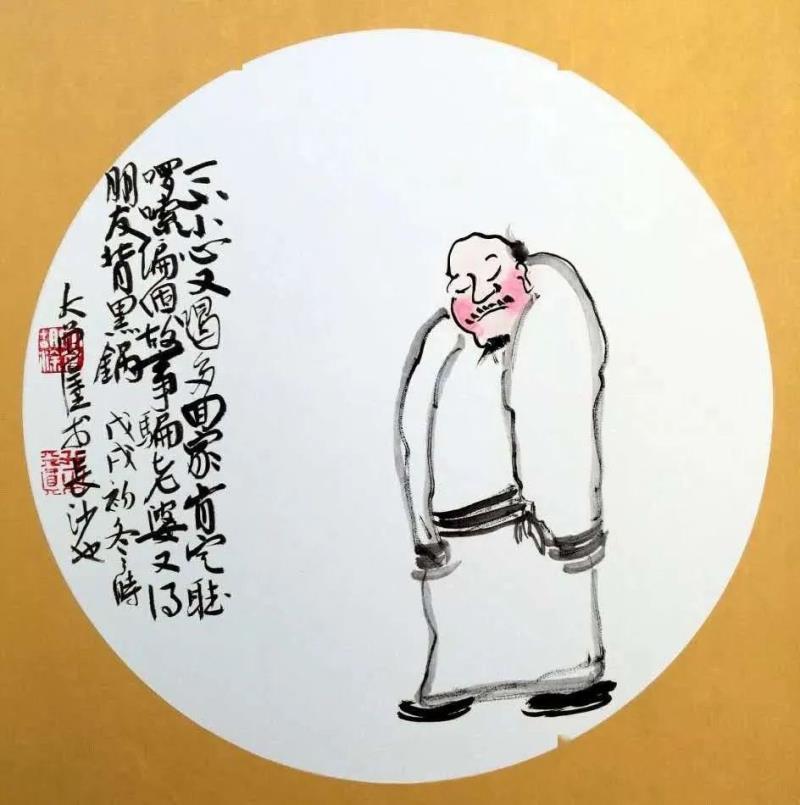 一不小心又喝多回家肯定聽
啰嗦编個故事騙老婆又得
朋友背黑鍋 戊戌初冬時
大曾佳於長沙也